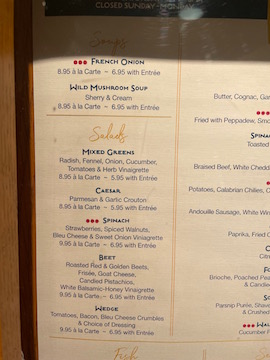 CLOSED SUNDAY - MONDAY
Soups
FRENCH ONION
8.95 à la Carte ~ 6.95 with Entrée
WILD MUSHROOM SOUP
Sherry & Cream
8.95 à la Carte ~ 6.95 with Entrée
Salads
MIXED GREENS
Radish, Fennel, Onion, Cucumber,
Tomatoes & Herb Vinaigrette
8.95 à la Carte ~ 5.95 with Entrée
CAESAR
Parmesan & Garlic Crouton
8.95 à la Carte ~ 5.95 with Entrée
SPINACH
Strawberries, Spiced Walnuts,
Bleu Cheese & Sweet Onion Vinaigrette
9.95 à la Carte ~ 6.95 with Entrée
BEET
Roasted Red & Golden Beets,
Frisée, Goat Cheese,
Candied Pistachios,
White Balsamic-Honey Vinaigrette
9.95 à la Carte ~ 6.95 with Entrée
WEDGE
Tomatoes, Bacon, Bleu Cheese Crumbles
& Choice of Dressing
9.95 à la Carte ~ 6.95 with Entrée
Fish
Butter, Cognac,
Fried with Peppadew,
Toasted
Braised Beef, White
Potatoes, Calabrian Chilies,
Andouille Sausage, White
Paprika, Fried
Brioche, Poached
& Candied
Parsnip Purée,
& Crushed
Cucumber